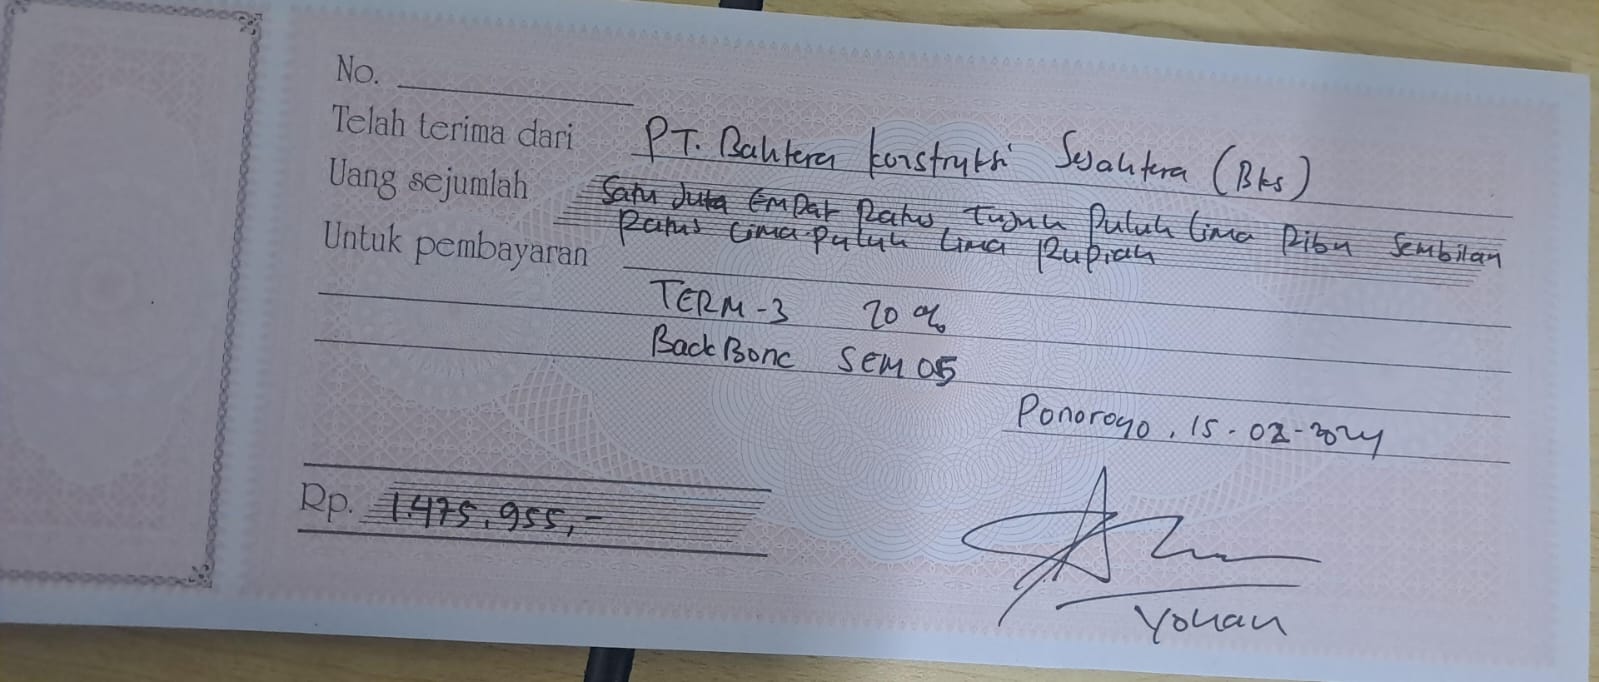 No.
Telah terima dari PT. Bahtera Konstruksi Sejahtera (Bks)
Uang sejumlah Satu Juta Empat Ratus Tujuh Puluh Lima Ribu Sembilan
Ratus Lima Puluh Lima Rupiah
Untuk pembayaran
TERM-3 20%
BackBone SEM 05
Ponorogo, 15-02-2024
Rp. 1.475.955,-
Yohan